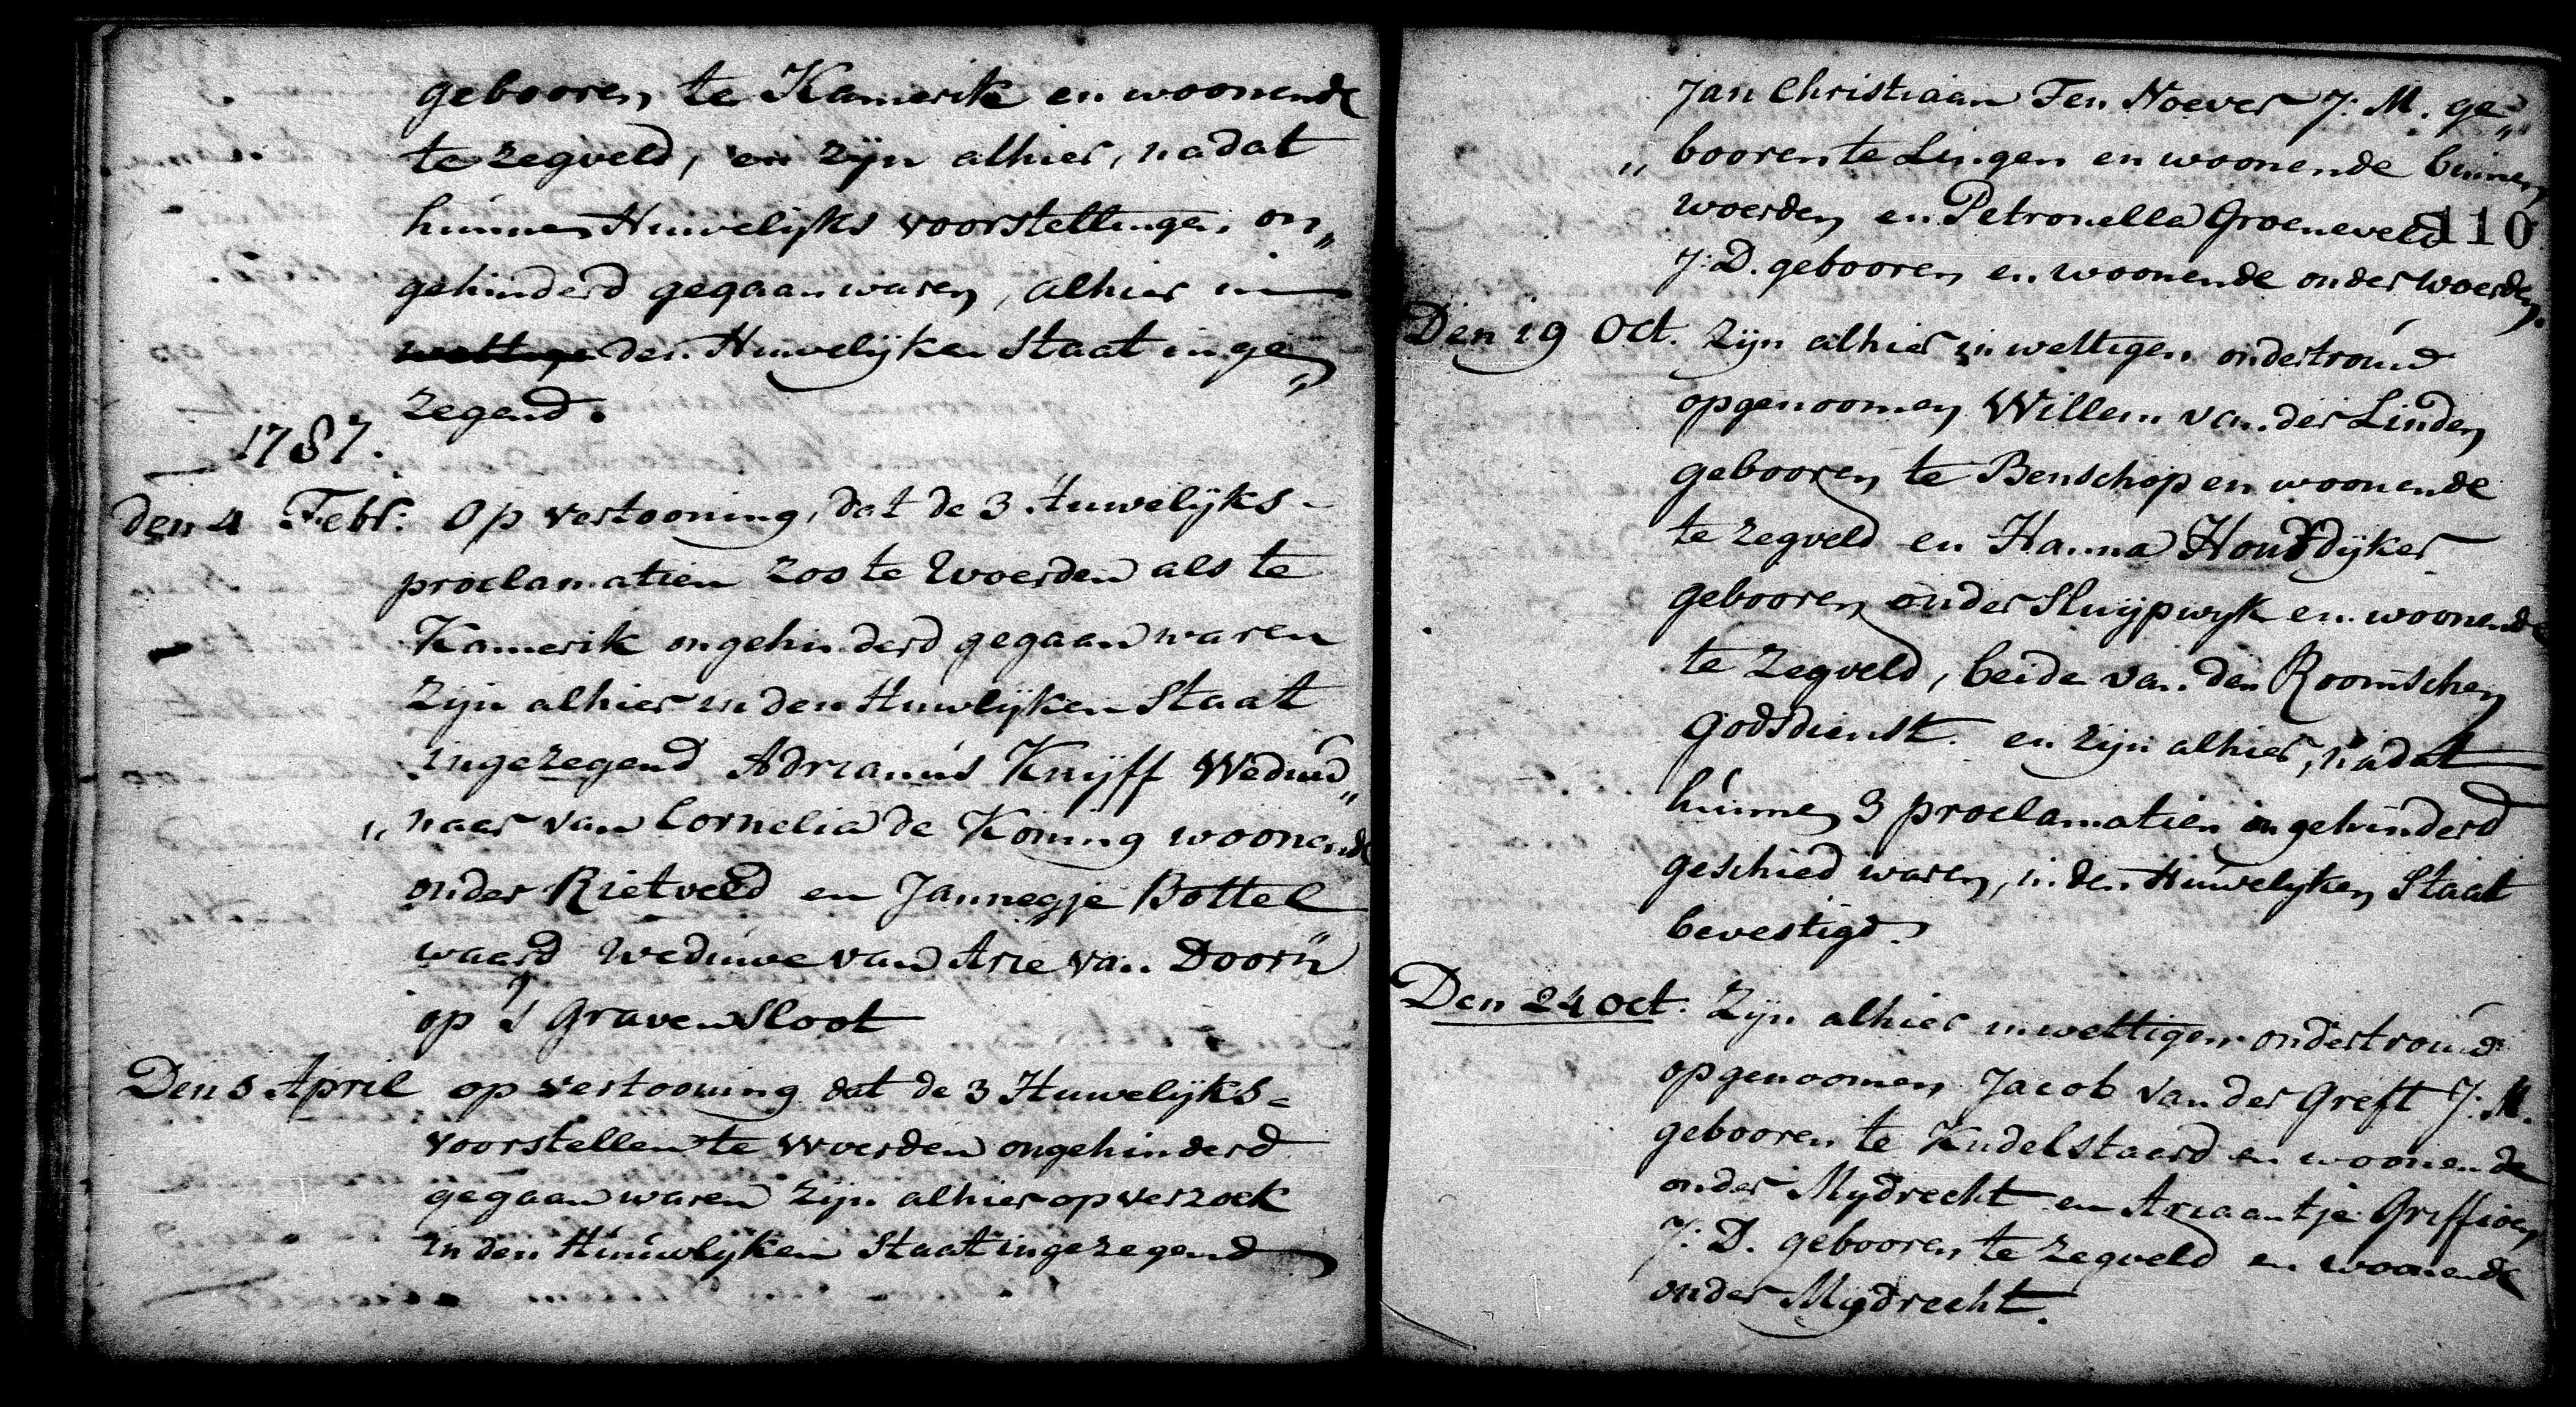 gebooren te Kamerik en woonende
te Zegveld, en zijn alhier, nadat
hunne Huwelijks voorstellingen on„
gehinderd gegaan waren, alhier in
wettige den Huwelijken Staat inge„
zegend.
1787.
den 4 Febr: Op vertooning, dat de 3 Huwelijks-
proclamatien zoo te Woerden als te
Kamerik ongehinderd gegaan waren
zijn alhier in den Huwlijken Staat
ingezegend Adrianus Knijff Weduw„
„naar van Cornelia de Koning woonende
onder Rietveld en Jannegje Bottel
waard Weduwe van Arie van Doorn
op 's Gravensloot
Den 5 April op vertooning dat de 3 Huwelijks-
voorstellen te Woerden ongehinderd
gegaan waren zijn alhier op verzoek
in den Huuwlijken Staat ingezegend
Jan Christiaan Ten Hoever J: M. ge„
„booren te Lingen en woonende binnen
Woerden en Petronella Groeneveld
110
J: D. gebooren en woonende onder Woerden.
Den 19 Oct. Zijn alhier in wettigen ondertrouw
opgenoomen Willem van der Linden
gebooren te Benschop en woonende
te Zegveld en Hanna Houdijker
gebooren onder Sluijpwyk en woonende
te Zegveld, beide van den Roomschen
Godsdienst. en zijn alhier, nadat
hunne 3 proclamatien ongehinderd
geschied waren, in den Huwelijken Staat
bevestigd.
Den 24 Oct. Zijn alhier in wettigen ondertrouw
opgenoomen Jacob van der Greft J: M.
gebooren te Kudelstaard en woonende
onder Mydrecht en Ariaantje Griffioen
J: D. gebooren te Zegveld en woonende
onder Mydrecht.